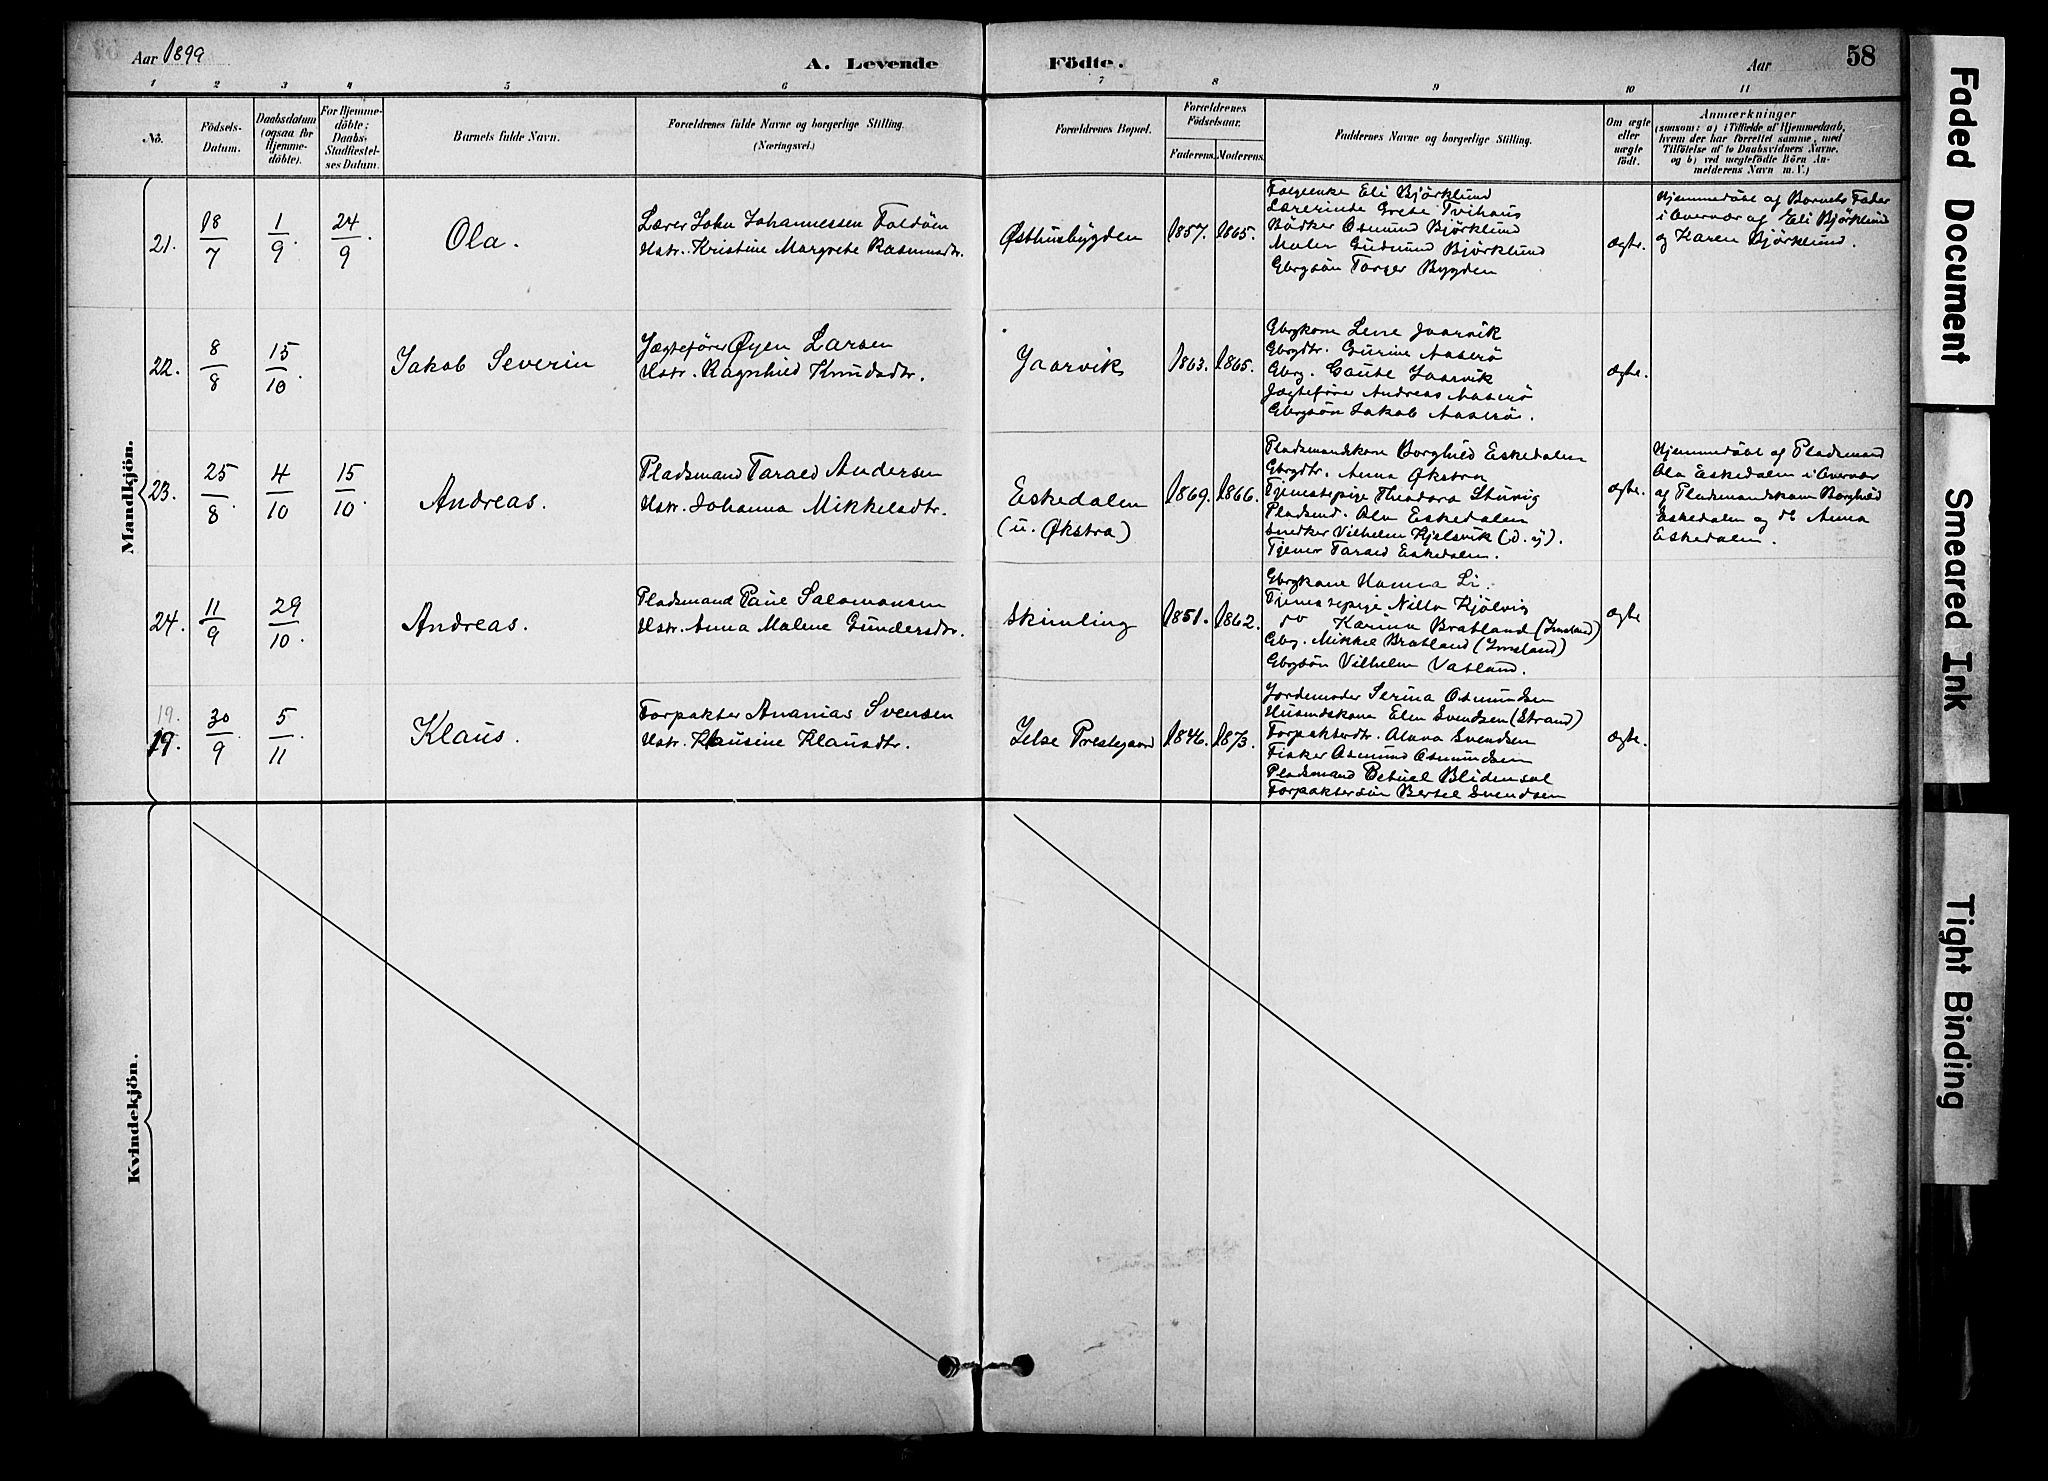 Aar 1899
A. Levende
Födte.
Aar
58
1 2 3 4 5 6 7 8 9 10 11
No.
Födsels-
Datum.
Daabsdatum
(ogsaa for
Hjemme-
döbte).
For Hjemme-
döbte:
Daabs-
Stadfæstel-
ses Datum.
Barnets fulde Navn.
Forældrenes fulde Navne og borgerlige Stilling.
(Næringsvei.)
Forældrenes Bopæl.
Forældrenes
Födselsaar.
Faderens. Moderens.
Faddernes Navne og borgerlige Stilling.
Om ægte
eller
uægte
födt.
Anmærkninger
(saasom: a) i Tilfælde af Hjemmedaab,
hvem der har forrettet samme, med
Tilföielse af to Daabsvidners Navne.
og b) ved uægtefödte Börn An-
melderens Navn m. V.)
Mandkjön.
21.
18/7
1/9.
24/9.
Ola.
Lærer John Johannessen Foldöen
Hstr. Kristine Margrete Rasmusdtr.
Østhusbygden
1857. 1865.
Eli Björklund
Lærerinde Grete Tvihaus
Bödker Osmund Björklund
Maler Gudmund Björklund
Gbrgsön Torger Bygden
ægte.
Hjemmedöbt af Barnets Fader
i Overvær af Eli Björklund
og Karen Björklund.
22.
8/8
15/10.
Jakob Severin
Jægtefører Øyen Larsen
Hstr. Ragnhild Knudsdtr.
Jaarvik
1863. 1865.
Gbrgkone Lene Jaarvik
Gbrgdtr. Gurine Aaserö
Gbrg. Gaute Jaarvik
Jægteförer Andreas Aaserö
Gbrgsön Jakob Aaserö
ægte.
23.
25/8.
4/10
15/10.
Andreas.
Pladsmand Tarald Andersen
Hstr. Johanna Mikkelsdtr.
Eskedalen
(u. Økstra)
1869. 1866.
Pladsmandskone Borghild Eskedalen
Gbrgdtr. Anna Økstra
Tjenestepige Theodora Sturig
Pladsmd. Ola Eskedalen
Snedker Vilhelm Kjelsvik (d. y).
Tjener Tarald Eskedalen.
ægte.
Hjemmedöbt af Pladsmand
Ola Eskedalen i Overvær
af Pladsmandskone Borghild
Eskedalen og Anna
Eskedalen.
24.
11/9
29/10.
Andreas.
Pladsmand Paul Salamonsen
Hstr. Anna Malene Gundersdtr.
Skimling
1851. 1862.
Gbrgkone Hanna Li.
Tjenestepige Nilla Kjölvig
do Karina Bratland (Imsland)
Gbg. Mikkel Bratland (Imsland)
Gbrgsön Vilhelm Vatland.
ægte
19.
19.
30/9
5/11
Klaus.
Forpakter Ananias Svensen
Hstr. Klausine Klausdtr.
Jelse Prestegaard
1846. 1873.
Jordemoder Serina Osmundsen
Husmdskone Elen Svendsen (Strand)
Forpakterdtr. Olava Svendsen
Fisker Osmund Osmundsen
Pladsmand Betuel Blidensol
Forpaktersön Bertel Svendsen
ægte.
Kvindekjön.
Faded Document
Smeared Ink
Tight Binding